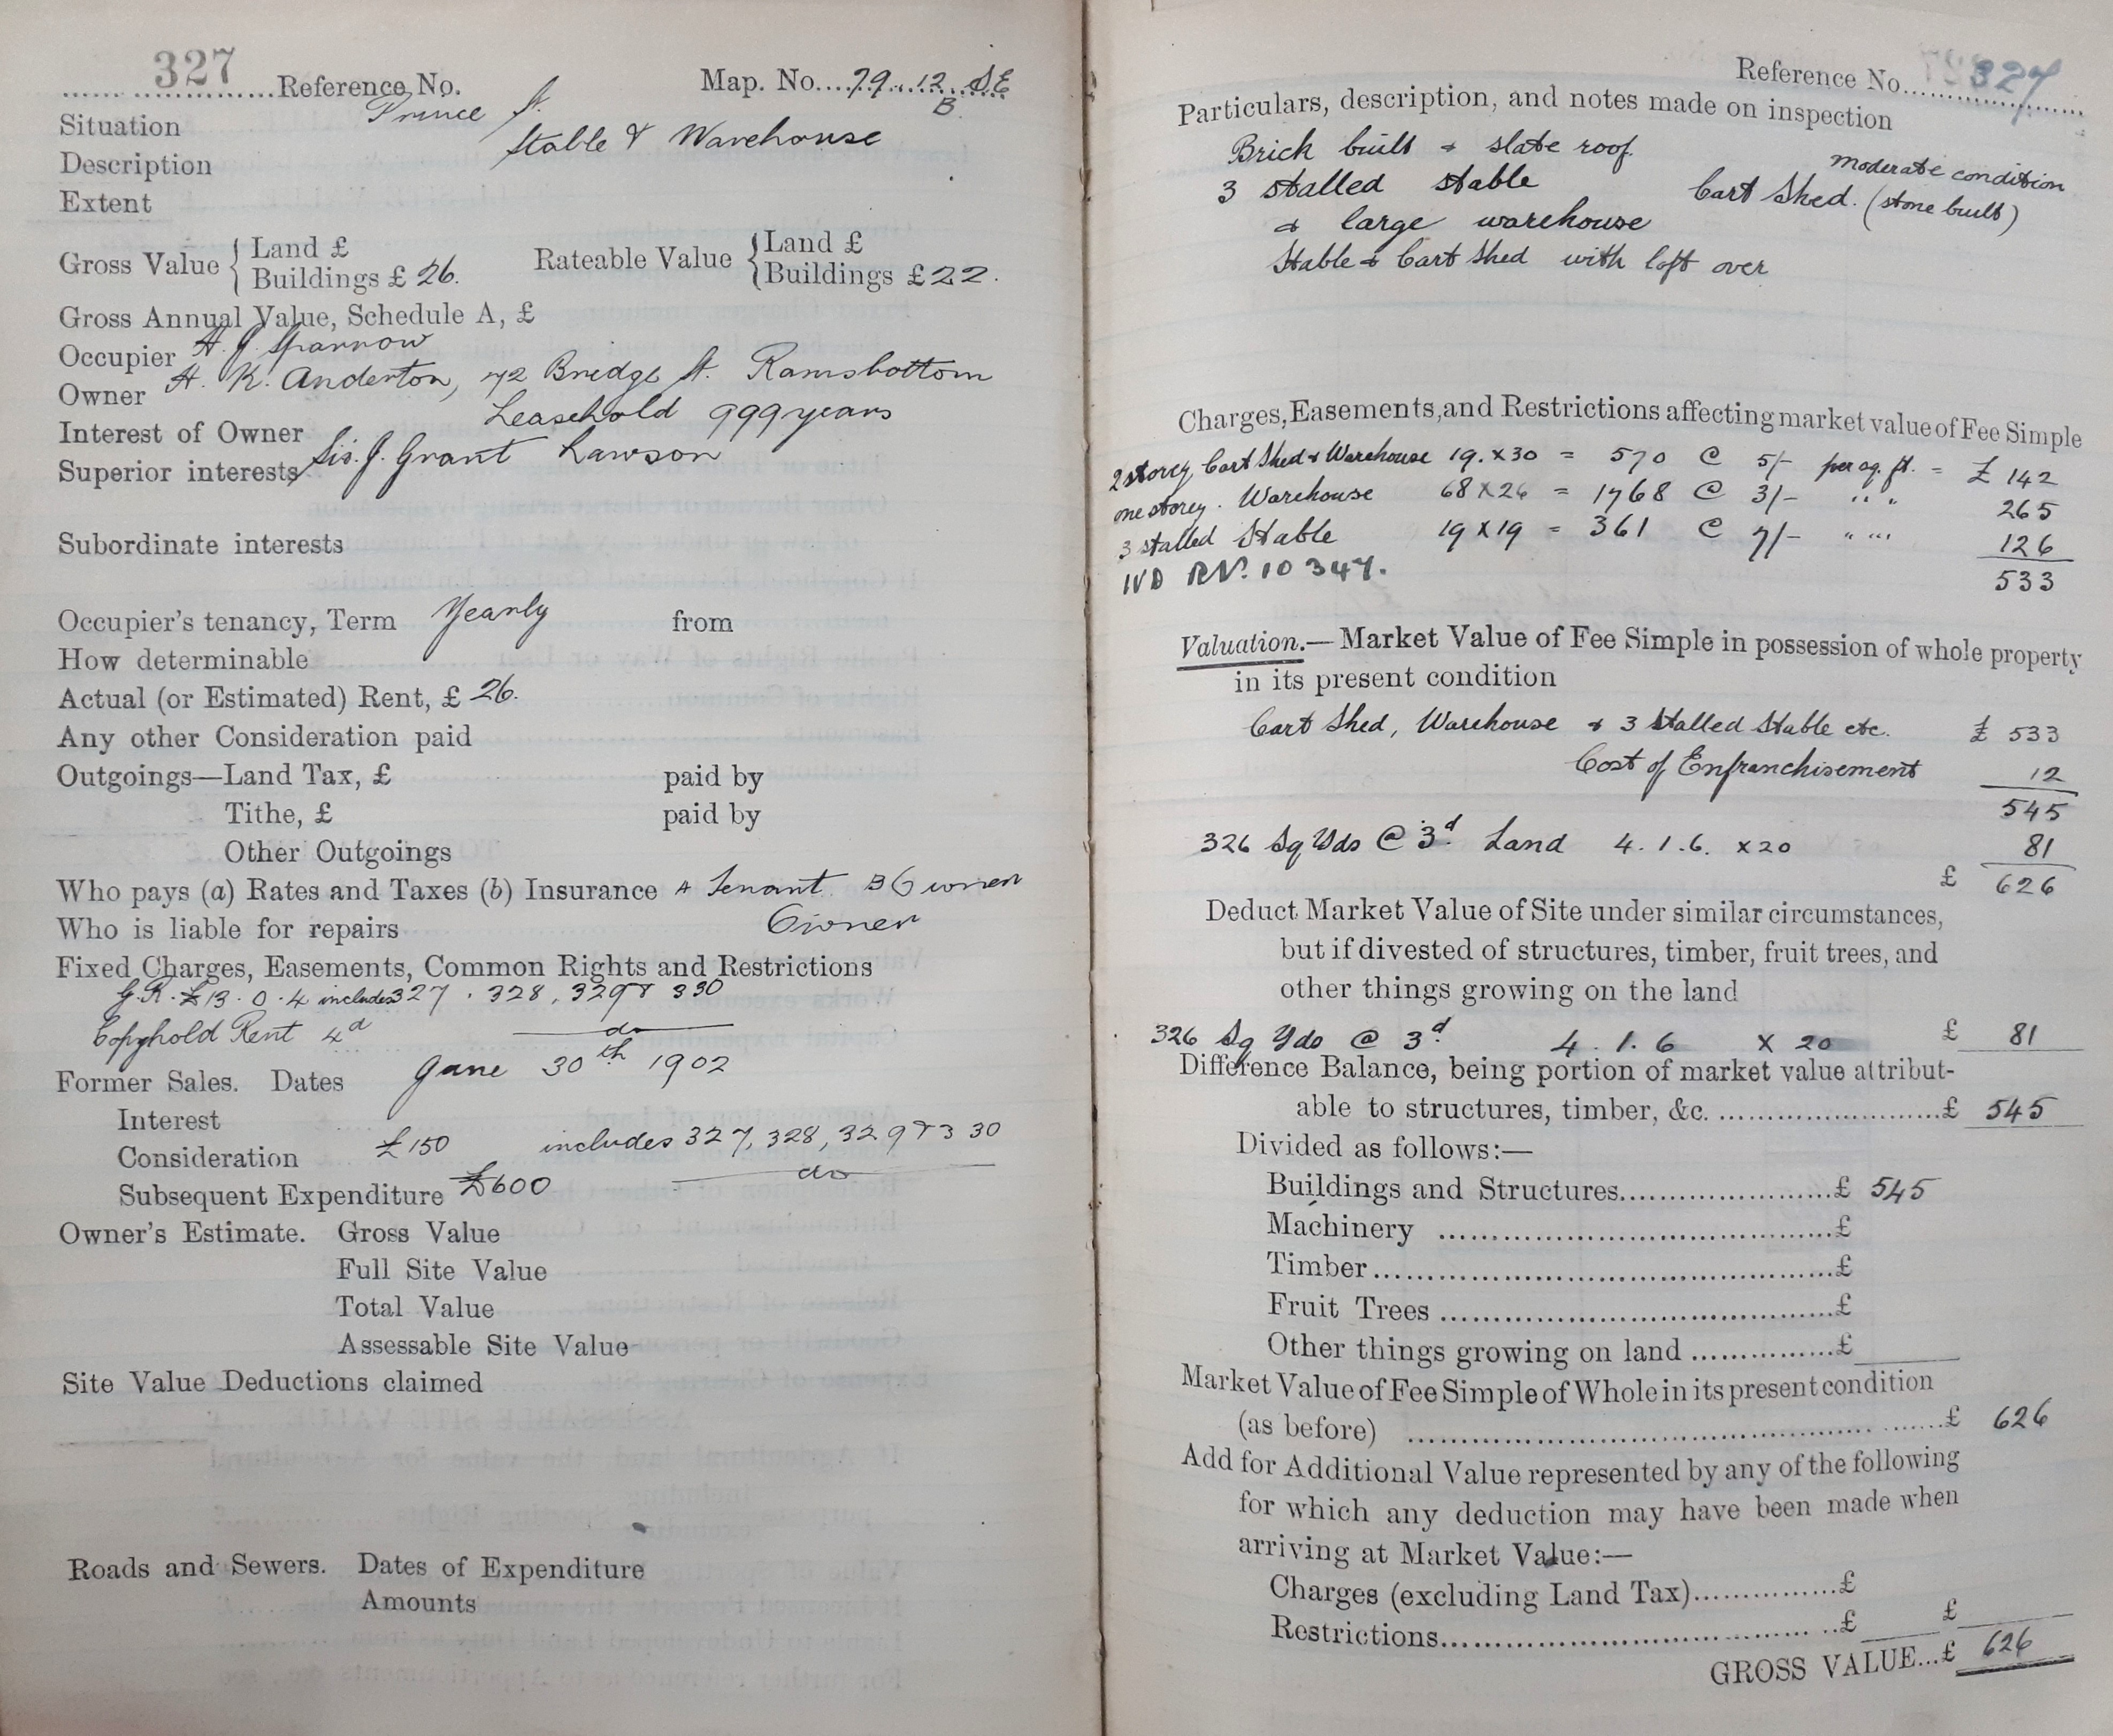 327 Reference No. Map. No. 79.12 SE
B.
Situation Prince St.
Description Stable & Warehouse
Extent
Gross Value { Land £ Rateable Value { Land £
Buildings £ 26. Buildings £ 22.
Gross Annual Value, Schedule A, £
Occupier H. J. Sparrow
Owner H. K. Anderton, 72 Bridge St. Ramsbottom
Interest of Owner Leasehold 999 years
Superior interests Sir. J. Grant Lawson
Subordinate interests
Occupier's tenancy, Term Yearly from
How determinable
Actual (or Estimated) Rent, £ 26.
Any other Consideration paid
Outgoings—Land Tax, £ paid by
Tithe, £ paid by
Other Outgoings
Who pays (a) Rates and Taxes (b) Insurance A Tenant B Owner
Who is liable for repairs Owner
Fixed Charges, Easements, Common Rights and Restrictions
G.R. £13.0.4 includes 327. 328, 329 & 330
Copyhold Rent 4d do
Former Sales. Dates June 30th 1902
Interest
Consideration £150 includes 327, 328, 329 & 330
Subsequent Expenditure £600 do
Owner's Estimate. Gross Value
Full Site Value
Total Value
Assessable Site Value
Site Value Deductions claimed
Roads and Sewers. Dates of Expenditure
Amounts
Reference No. 327
Particulars, description, and notes made on inspection
Brick built & slate roof. moderate condition
3 stalled stable Cart Shed. (stone built)
& large warehouse
Stable & Cart Shed with loft over
Charges, Easements, and Restrictions affecting market value of Fee Simple
2 storey Cart Shed & Warehouse 19. x 30 = 570 @ 5/- per sq. ft. = £ 142
one storey. Warehouse 68 x 26 = 1768 @ 3/- " " 265
3 stalled Stable 19 x 19 = 361 @ 7/- " " " 126
IVD RNo. 10347. 533
Valuation.—Market Value of Fee Simple in possession of whole property
in its present condition
Cart Shed, Warehouse & 3 Stalled Stable etc. £ 533
Cost of Enfranchisement 12
545
326 Sq Yds @ 3d. Land 4.1.6. x 20 81
£ 626
Deduct Market Value of Site under similar circumstances,
but if divested of structures, timber, fruit trees, and
other things growing on the land
326 Sq Yds @ 3d. 4.1.6 x 20 £ 81
Difference Balance, being portion of market value attribut-
able to structures, timber, &c. £ 545
Divided as follows:—
Buildings and Structures £ 545
Machinery £
Timber £
Fruit Trees £
Other things growing on land £
Market Value of Fee Simple of Whole in its present condition
(as before) £ 626
Add for Additional Value represented by any of the following
for which any deduction may have been made when
arriving at Market Value:—
Charges (excluding Land Tax) £
Restrictions £ £
GROSS VALUE £ 626